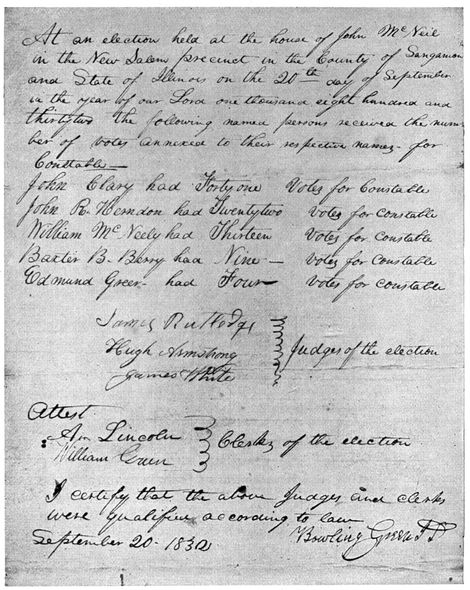 At an election held at the house of John McNeil
in the New Salem precinct in the County of Sangamon
and State of Illinois on the 20th day of September
in the year of our Lord one thousand eight hundred and
thirtytwo the following named persons received the num-
ber of votes annexed to their respective names - for
Constable —
John Clary had Fortyone Votes for Constable
John R. Herndon had Twentytwo Votes for Constable
William McNeely had Thirteen Votes for Constable
Baxter B. Berry had Nine — Votes for Constable
Edmund Greer - had Four Votes for Constable
James Rutledge
Hugh Armstrong } Judges of the election
James White
Attest
A Lincoln } Clerks of the election
William Green
I certify that the above Judges and clerks
were qualified according to law
September 20 - 1832 Bowling Green